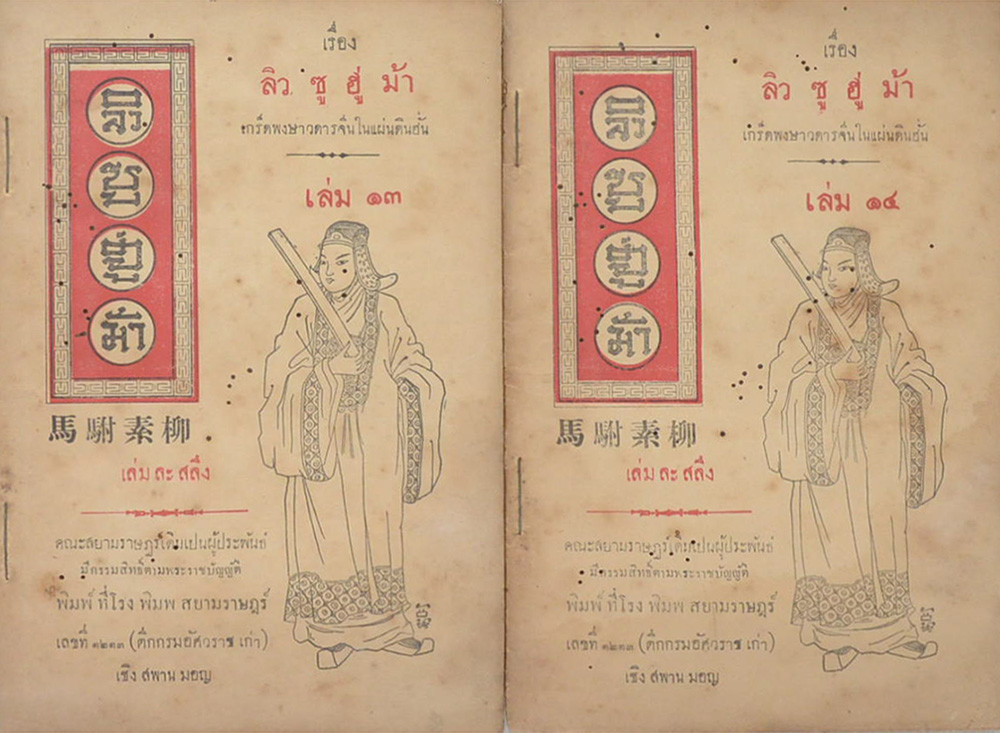 ลิว
ซู
ฮู่
ม้า
馬駙素柳
เล่ม ละ สลึง
เรื่อง
ลิว ซู ฮู่ ม้า
เกร็ดพงษาวดารจีนในแผ่นดินฮั่น
เล่ม ๑๓
คณะสยามราษฎร์เดิมเปนผู้ประพันธ์
มีกรรมสิทธิ์ตามพระราชบัญญัติ
พิมพ์ ที่โรง พิมพ์ สยามราษฎร์
เลขที่ ๑๒๑๓ (ตึกกรมอัศวราช เก่า)
เชิง สพาน มอญ
ลิว
ซู
ฮู่
ม้า
馬駙素柳
เล่ม ละ สลึง
เรื่อง
ลิว ซู ฮู่ ม้า
เกร็ดพงษาวดารจีนในแผ่นดินฮั่น
เล่ม ๑๔
คณะสยามราษฎร์เดิมเปนผู้ประพันธ์
มีกรรมสิทธิ์ตามพระราชบัญญัติ
พิมพ์ ที่โรง พิมพ์ สยามราษฎร์
เลขที่ ๑๒๑๓ (ตึกกรมอัศวราช เก่า)
เชิง สพาน มอญ